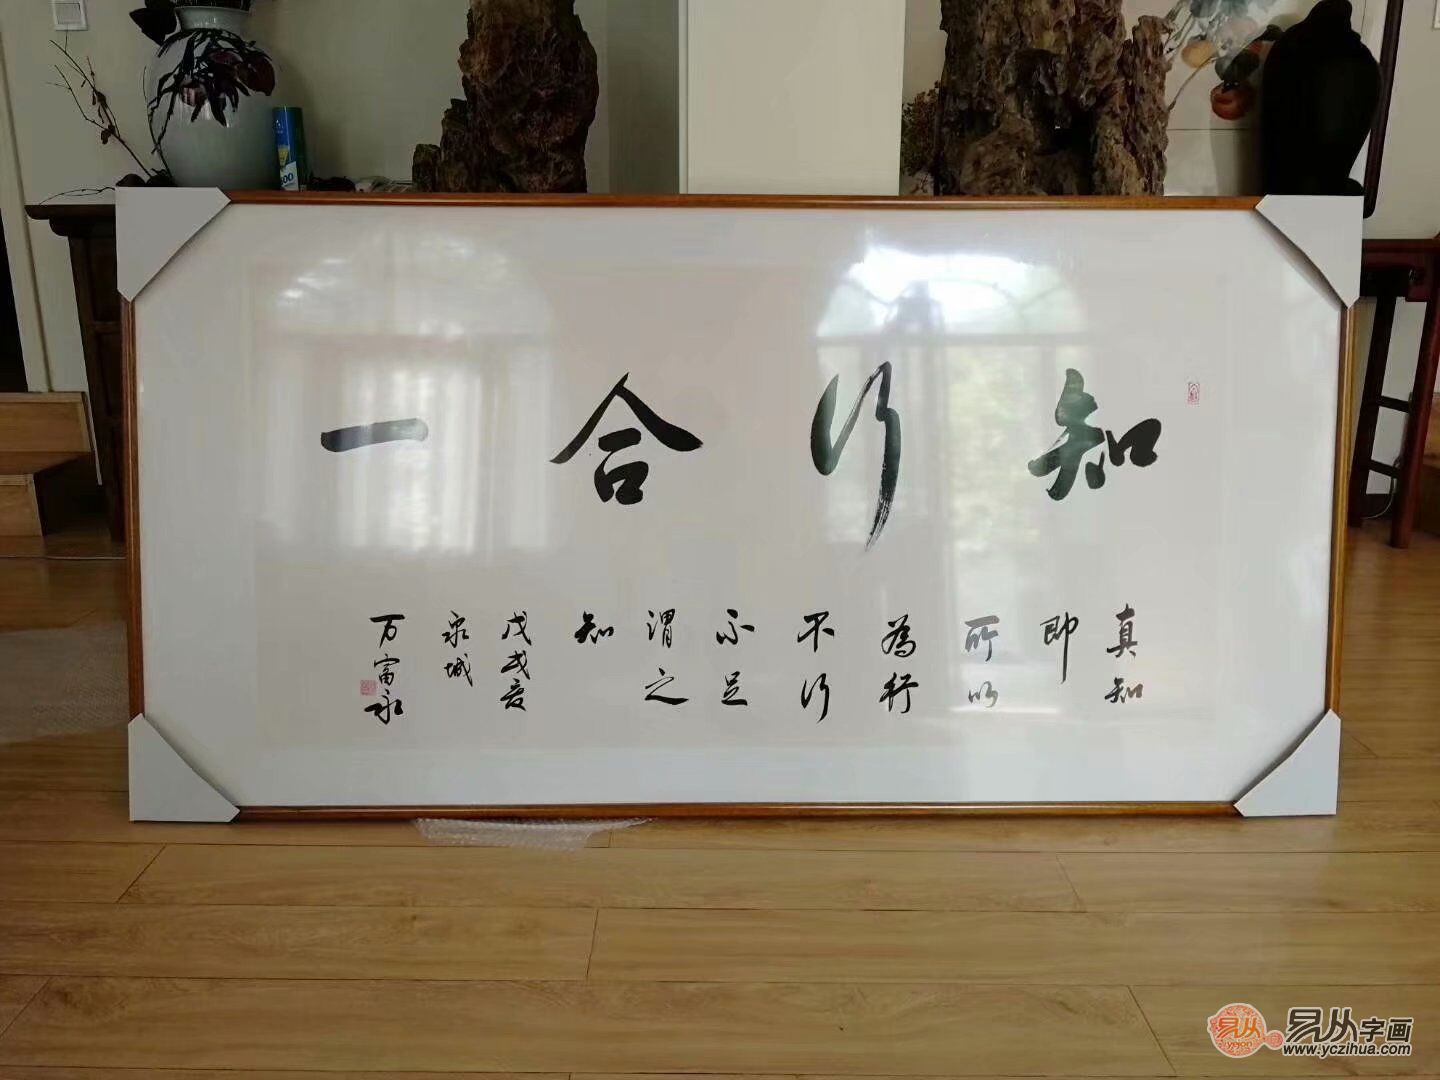 知行合一
真知
即
所以
為行
不行
不足
謂之
知
戊戌夏
泉城
万富永
易从
yicon
易从字画
www.yczihua.com